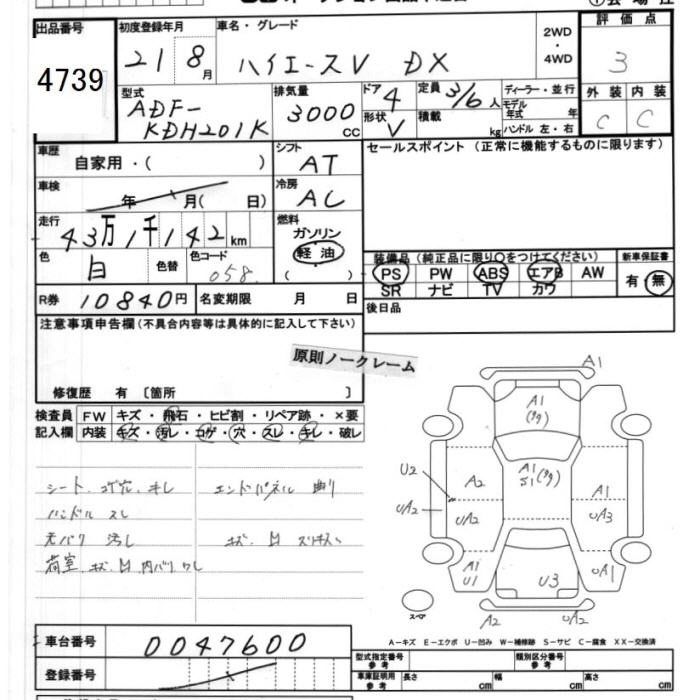 出品番号 初度登録年月 車名・グレード 2WD・4WD 評価点
4739 21 8月 ハイエースV DX 3
型式 排気量 ドア 4 定員 3/6人 ディーラー・並行 外装 内装
ADF-KDH201K 3000cc 形状 V 積載 kg モデル年式 年 ハンドル 左・右 C C
車歴 自家用・( ) シフト AT セールスポイント (正常に機能するものに限ります)
車検 年 月( 日) 冷房 AC
走行 43万1千142km 燃料 ガソリン 軽油 ( )
色 白 色替 色コード 058 装備品 (純正品に限り○をつけてください) 新車保証書
PS PW ABS エアB AW 有・無
SR ナビ TV カワ
R券 10840円 名変期限 月 日 後日品
注意事項申告欄(不具合内容等は具体的に記入して下さい)
原則ノークレーム
修復歴 有 〔箇所 〕
検査員 FW キズ・飛石・ヒビ割・リペア跡・×要
記入欄 内装 キズ・汚レ・コゲ・穴・スレ・キレ・破レ
シート、コゲ穴、キレ エンドパネル 曲り
ハンドル スレ
天バリ 汚レ キズ・凹
荷室、キズ 凹 内バリワレ
A1
A1
U2 A2 A1 A1
UA2 UA2 UA3
A1 U1 U3 UA1
スペア A2 UA2
A-キズ E-エクボ U-凹み W-補修跡 S-サビ C-腐食 XX-交換済
車台番号 0047600
登録番号
型式指定番号 参考 類別区分番号 参考
車庫証明用 参考 長さ cm 幅 cm 高さ cm